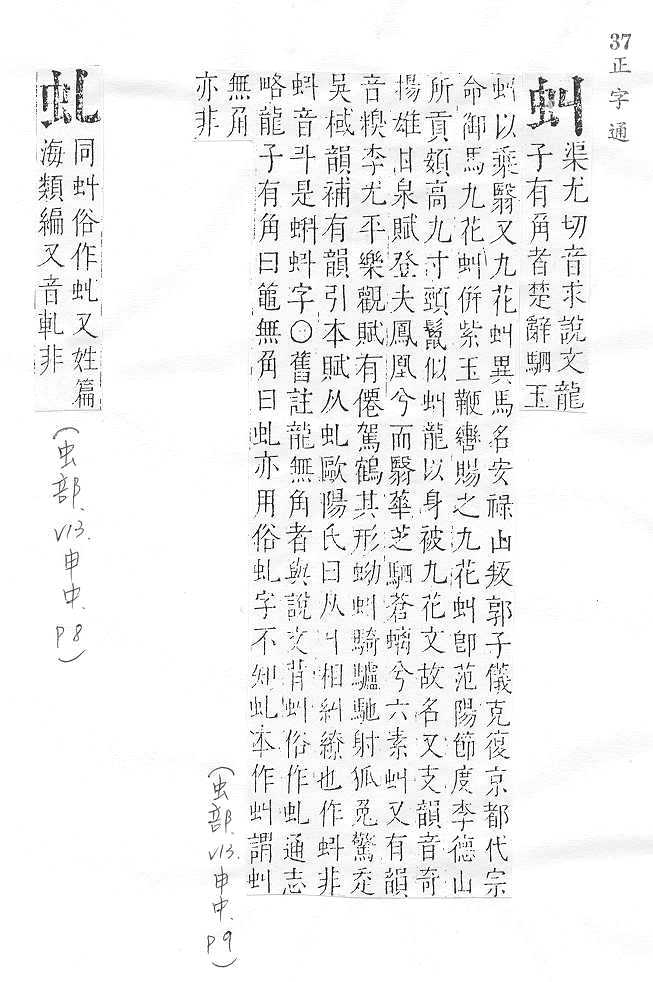 37正字通
虯
渠尤切音求說文龍
子有角者楚辭駟玉
虯以乘翳又九花虯異馬名安祿山叛郭子儀克復京都代宗
命御馬九花虯倂紫玉鞭轡賜之九花虯卽范陽節度李德山
所貢額高九寸頭鬣似虯龍以身被九花文故名又支韻音奇
揚雄甘泉賦登夫鳳凰兮而翳華芝駟蒼螭兮六素虯又有韻
音糗李尤平樂觀賦有僊駕鶴其形蚴虯騎驢馳射狐兔驚走
吳棫韻補有韻引本賦从虬歐陽氏曰从丩相糾繚也作蚪非
蚪音斗是蝌蚪字〇舊註龍無角者與說文背虯俗作虬通志
略龍子有角曰龜無角曰虬亦用俗虬字不知虬本作虯謂虯
無角
亦非
(虫部.v13.申中.p9)
虬
同虯俗作虬又姓篇
海類編又音軋非
(虫部.v13.申中.p8)